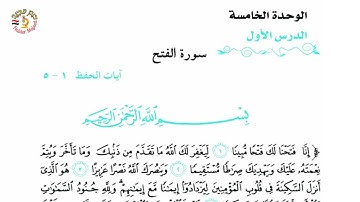 الوحدة الخامسة
الدرس الأول
سورة الفتح
آيات الحفظ ١ - ٥
بِسْمِ اللَّهِ الرَّحْمَٰنِ الرَّحِيمِ
﴿ إِنَّا فَتَحْنَا لَكَ فَتْحًا مُّبِينًا ١ لِّيَغْفِرَ لَكَ اللَّهُ مَا تَقَدَّمَ مِن ذَنۢبِكَ وَمَا تَأَخَّرَ وَيُتِمَّ
نِعْمَتَهُۥ عَلَيْكَ وَيَهْدِيَكَ صِرَٰطًا مُّسْتَقِيمًا ٢ وَيَنصُرَكَ اللَّهُ نَصْرًا عَزِيزًا ٣ هُوَ الَّذِىٓ
أَنزَلَ السَّكِينَةَ فِى قُلُوبِ الْمُؤْمِنِينَ لِيَزْدَادُوٓا۟ إِيمَٰنًا مَّعَ إِيمَٰنِهِمْ ۗ وَلِلَّهِ جُنُودُ السَّمَٰوَٰتِ